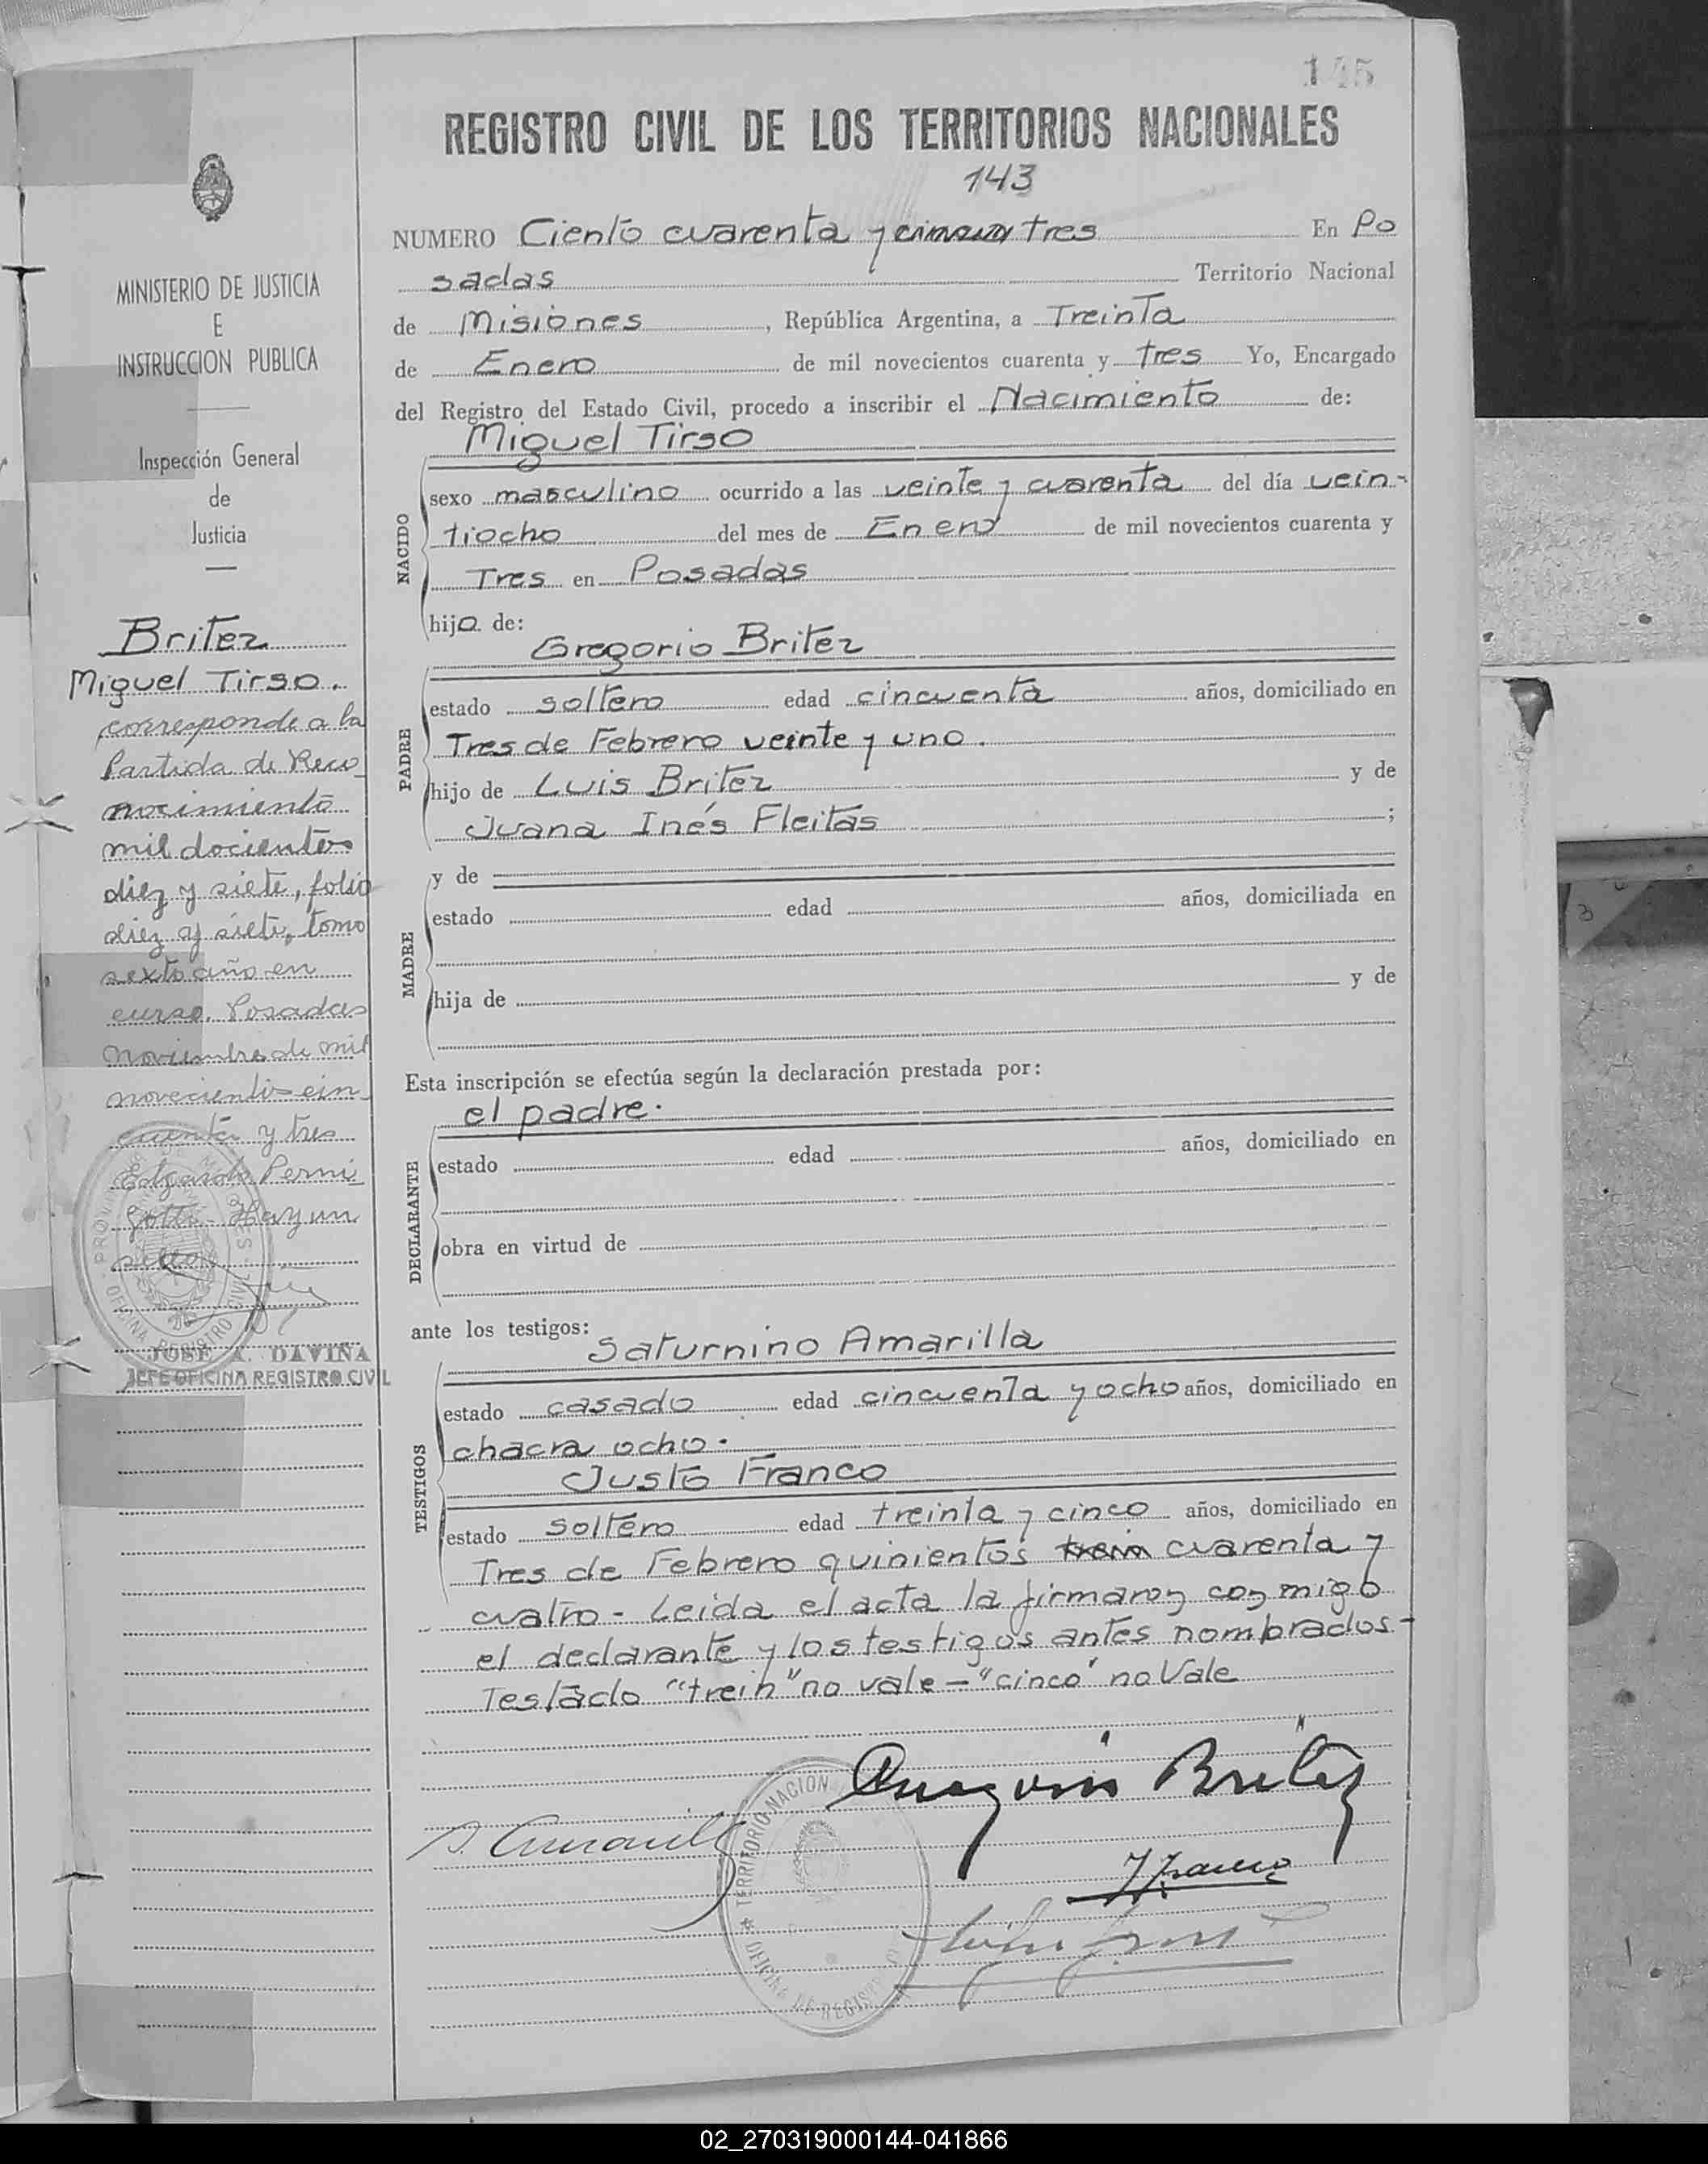 145
REGISTRO CIVIL DE LOS TERRITORIOS NACIONALES
143
NUMERO Ciento cuarenta y cinco tres En Po
sadas Territorio Nacional
de Misiones, República Argentina, a Treinta
de Enero de mil novecientos cuarenta y tres Yo, Encargado
del Registro del Estado Civil, procedo a inscribir el Nacimiento de:
Miguel Tirso
NACIDO
sexo masculino ocurrido a las veinte y cuarenta del día vein-
tiocho del mes de Enero de mil novecientos cuarenta y
Tres en Posadas
hijo de:
Gregorio Britez
PADRE
estado soltero edad cincuenta años, domiciliado en
Tres de Febrero veinte y uno.
hijo de Luis Britez y de
Juana Inés Fleitas ;
MADRE
y de
estado edad años, domiciliada en
hija de y de
Esta inscripción se efectúa según la declaración prestada por:
el padre.
DECLARANTE
estado edad años, domiciliado en
obra en virtud de
ante los testigos:
Saturnino Amarilla
TESTIGOS
estado casado edad cincuenta y ocho años, domiciliado en
chacra ocho.
Justo Franco
estado soltero edad treinta y cinco años, domiciliado en
Tres de Febrero quinientos trein cuarenta y
cuatro - Leida el acta la firmaron conmigo
el declarante y los testigos antes nombrados-
Testado "trein" no vale - "cinco" no Vale
Britez
S. Amarilla
J Franco
TERRITORIO NACION
OFICINA DE REGIST
MINISTERIO DE JUSTICIA
E
INSTRUCCION PUBLICA
Inspección General
de
Justicia
Britez
Miguel Tirso.
corresponde a la
Partida de Reco
nocimiento
mil docientos
diez y siete, folio
diez y siete, tomo
sexto año en
curso. Posadas
Noviembre de mil
novecientos cin
cuenta y tres
Edgardo Perni
gotti. Hay un
sello
OFICINA REGISTRO CIVIL
JOSE A. DAVIÑA
JEFE OFICINA REGISTRO CIVIL
02_270319000144-041866